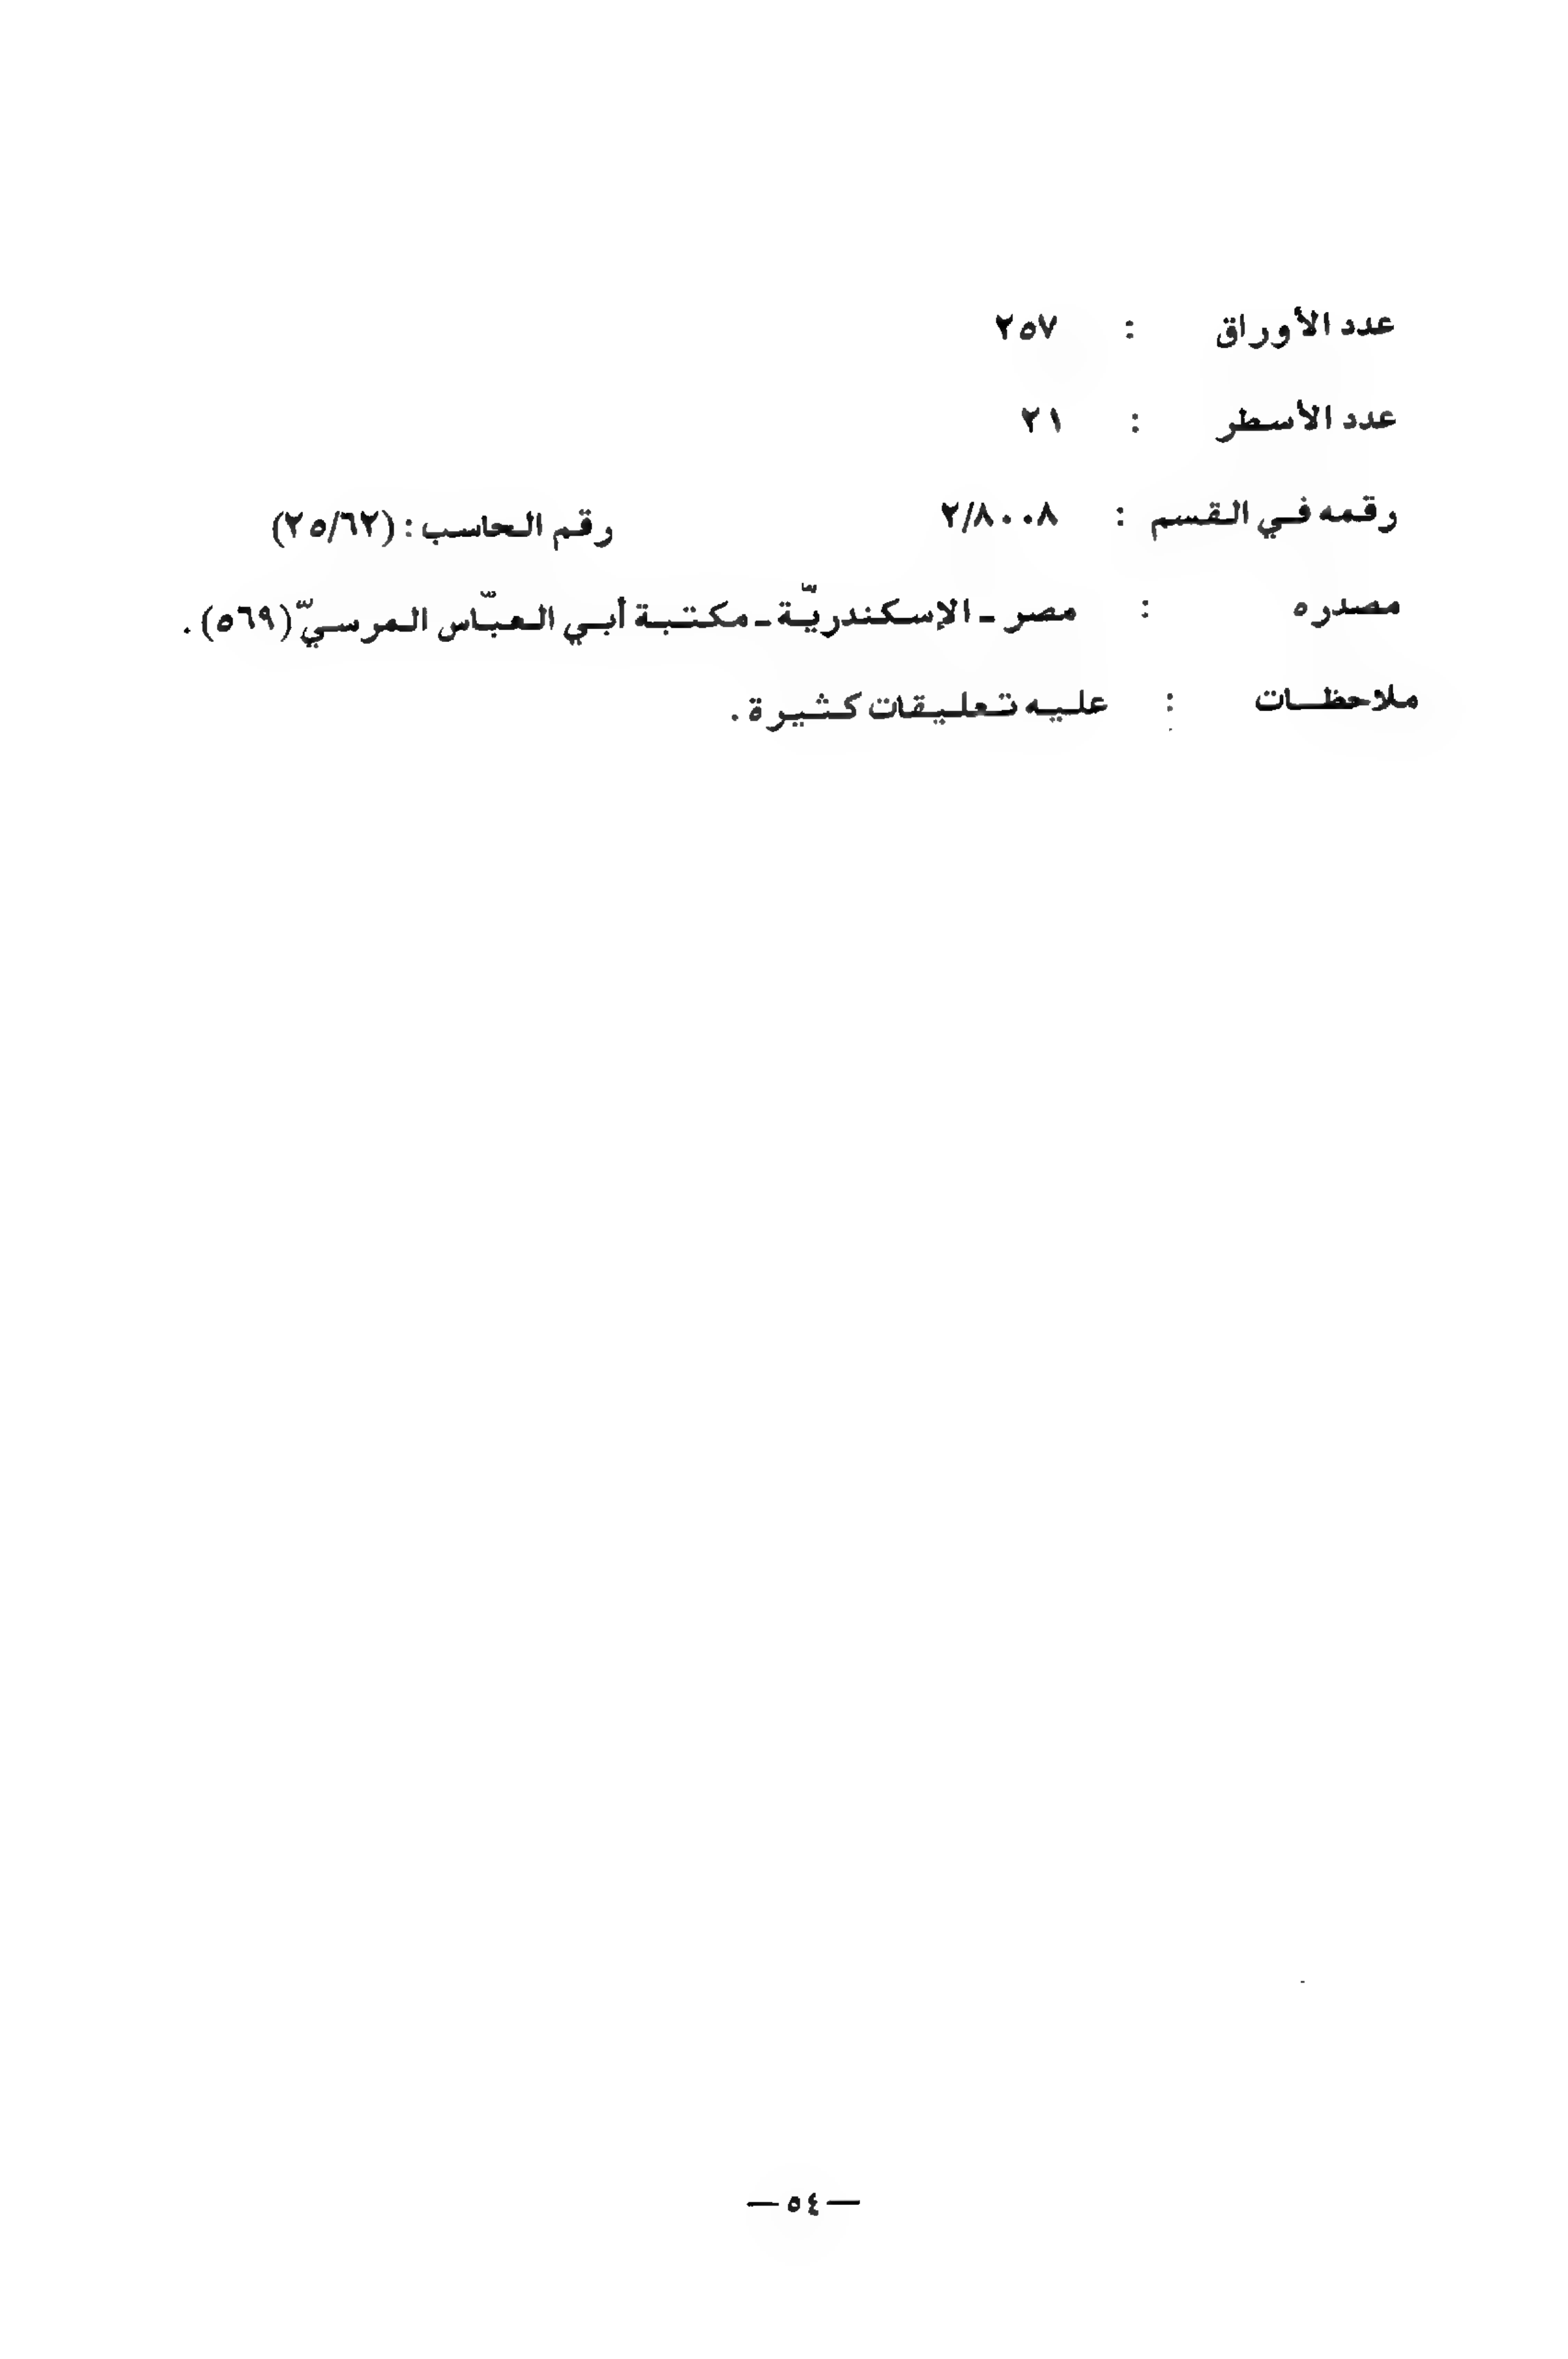 عدد الأوراق : ٢٥٧
عدد الأسطر : ٢١
رقمه في القسم : ٢/٨٠٠٨ رقم الحاسب : (٢٥/٦٢)
مصدره : مصر ـ الإسكندريّة ـ مكتبة أبي العبّاس المرسيّ (٥٦٩) .
ملاحظات : عليه تعليقات كثيرة .
— ٥٤ —